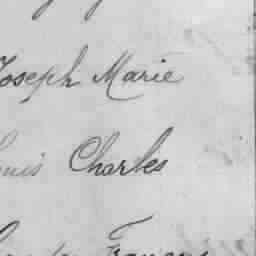 Joseph Marie
Louis Charles
François